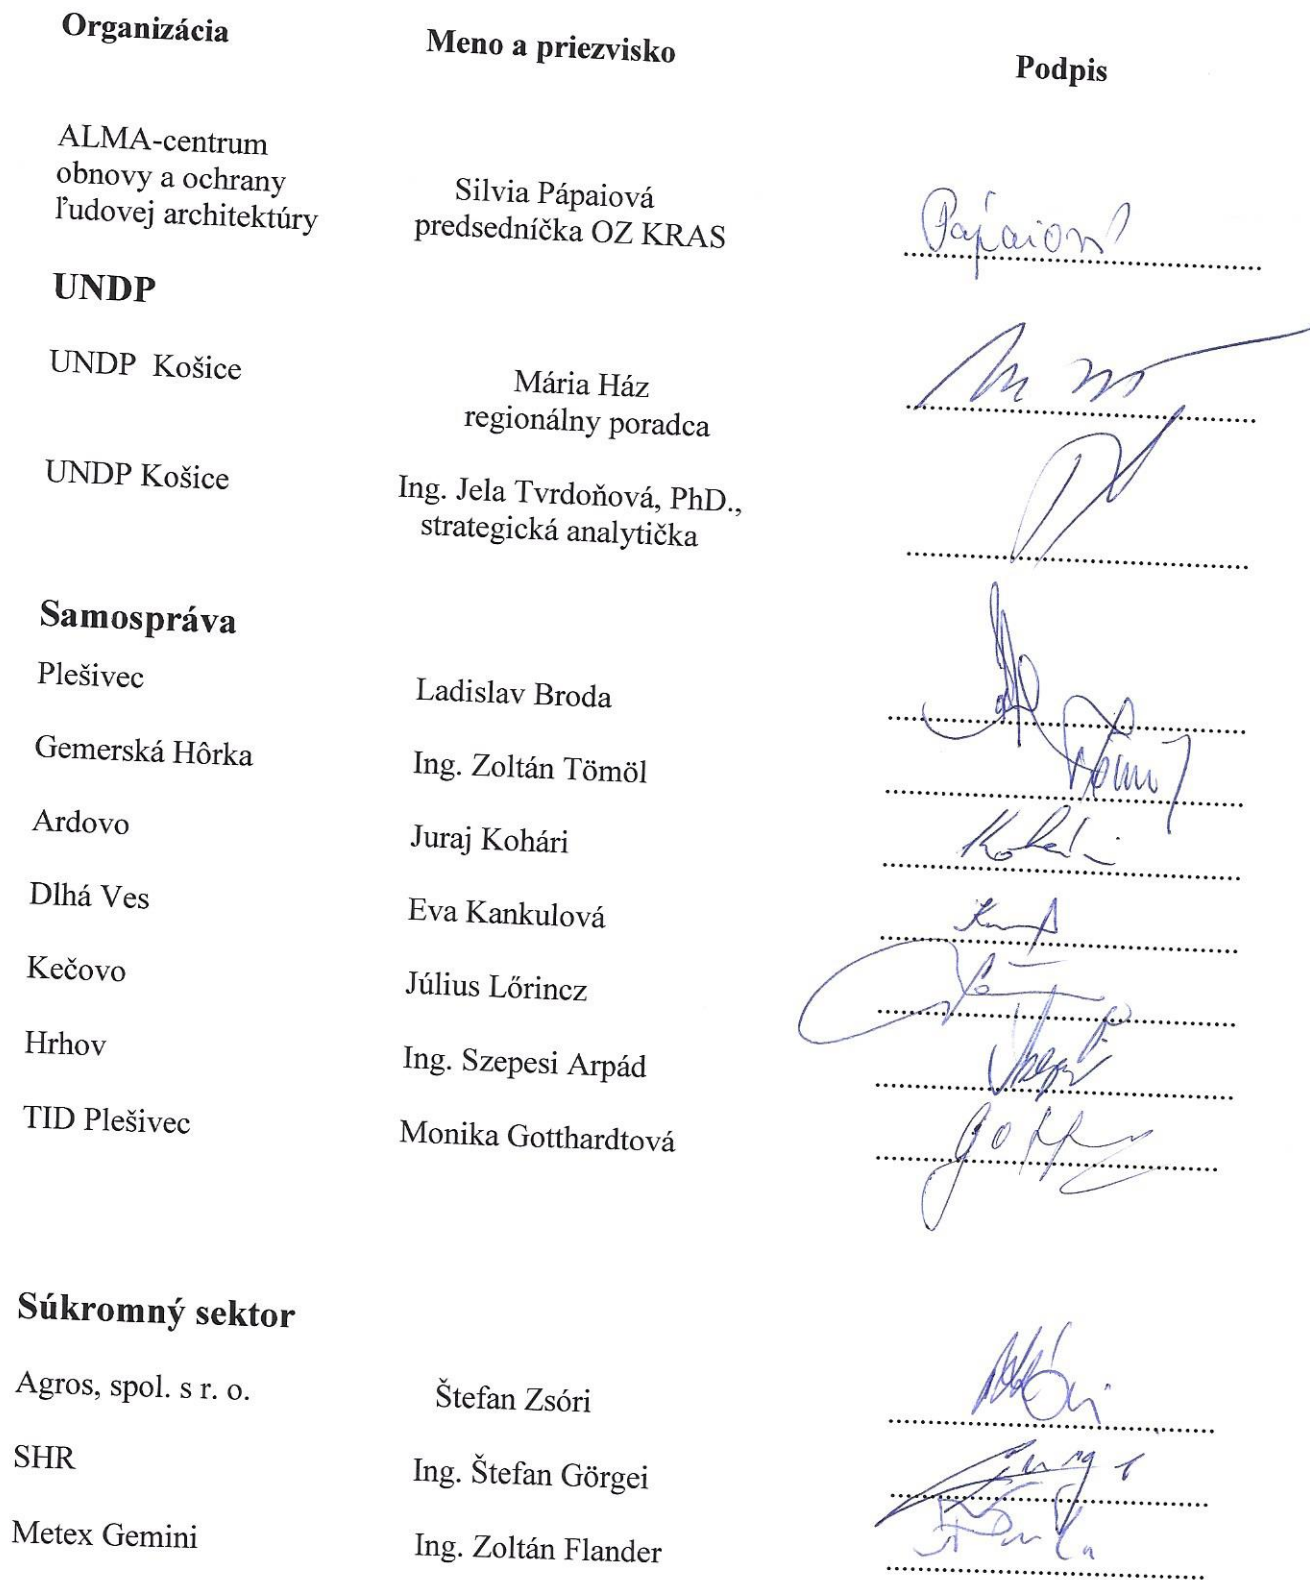 Organizácia Meno a priezvisko Podpis
ALMA-centrum
obnovy a ochrany
ľudovej architektúry
Silvia Pápaiová
predsedníčka OZ KRAS
Pápaiová
UNDP
UNDP Košice
Mária Ház
regionálny poradca
UNDP Košice
Ing. Jela Tvrdoňová, PhD.,
strategická analytička
Samospráva
Plešivec Ladislav Broda
Gemerská Hôrka Ing. Zoltán Tömöl
Ardovo Juraj Kohári Kohári
Dlhá Ves Eva Kankulová
Kečovo Július Lőrincz
Hrhov Ing. Szepesi Arpád
TID Plešivec Monika Gotthardtová
Súkromný sektor
Agros, spol. s r. o. Štefan Zsóri
SHR Ing. Štefan Görgei
Metex Gemini Ing. Zoltán Flander